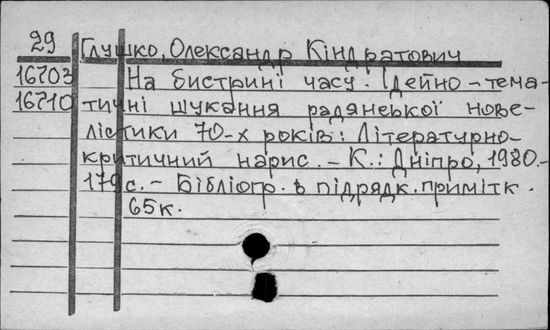 29 Глушко, Олександр Кіндратович
16703 На бистрині часу. Ідейно-тема-
16710 тичні шукання радянської нове-
лістики 70-х років: Літературно-
критичний нарис. - К.: Дніпро, 1980.-
179с. - Бібліогр. в підрядк. примітк.
65к.